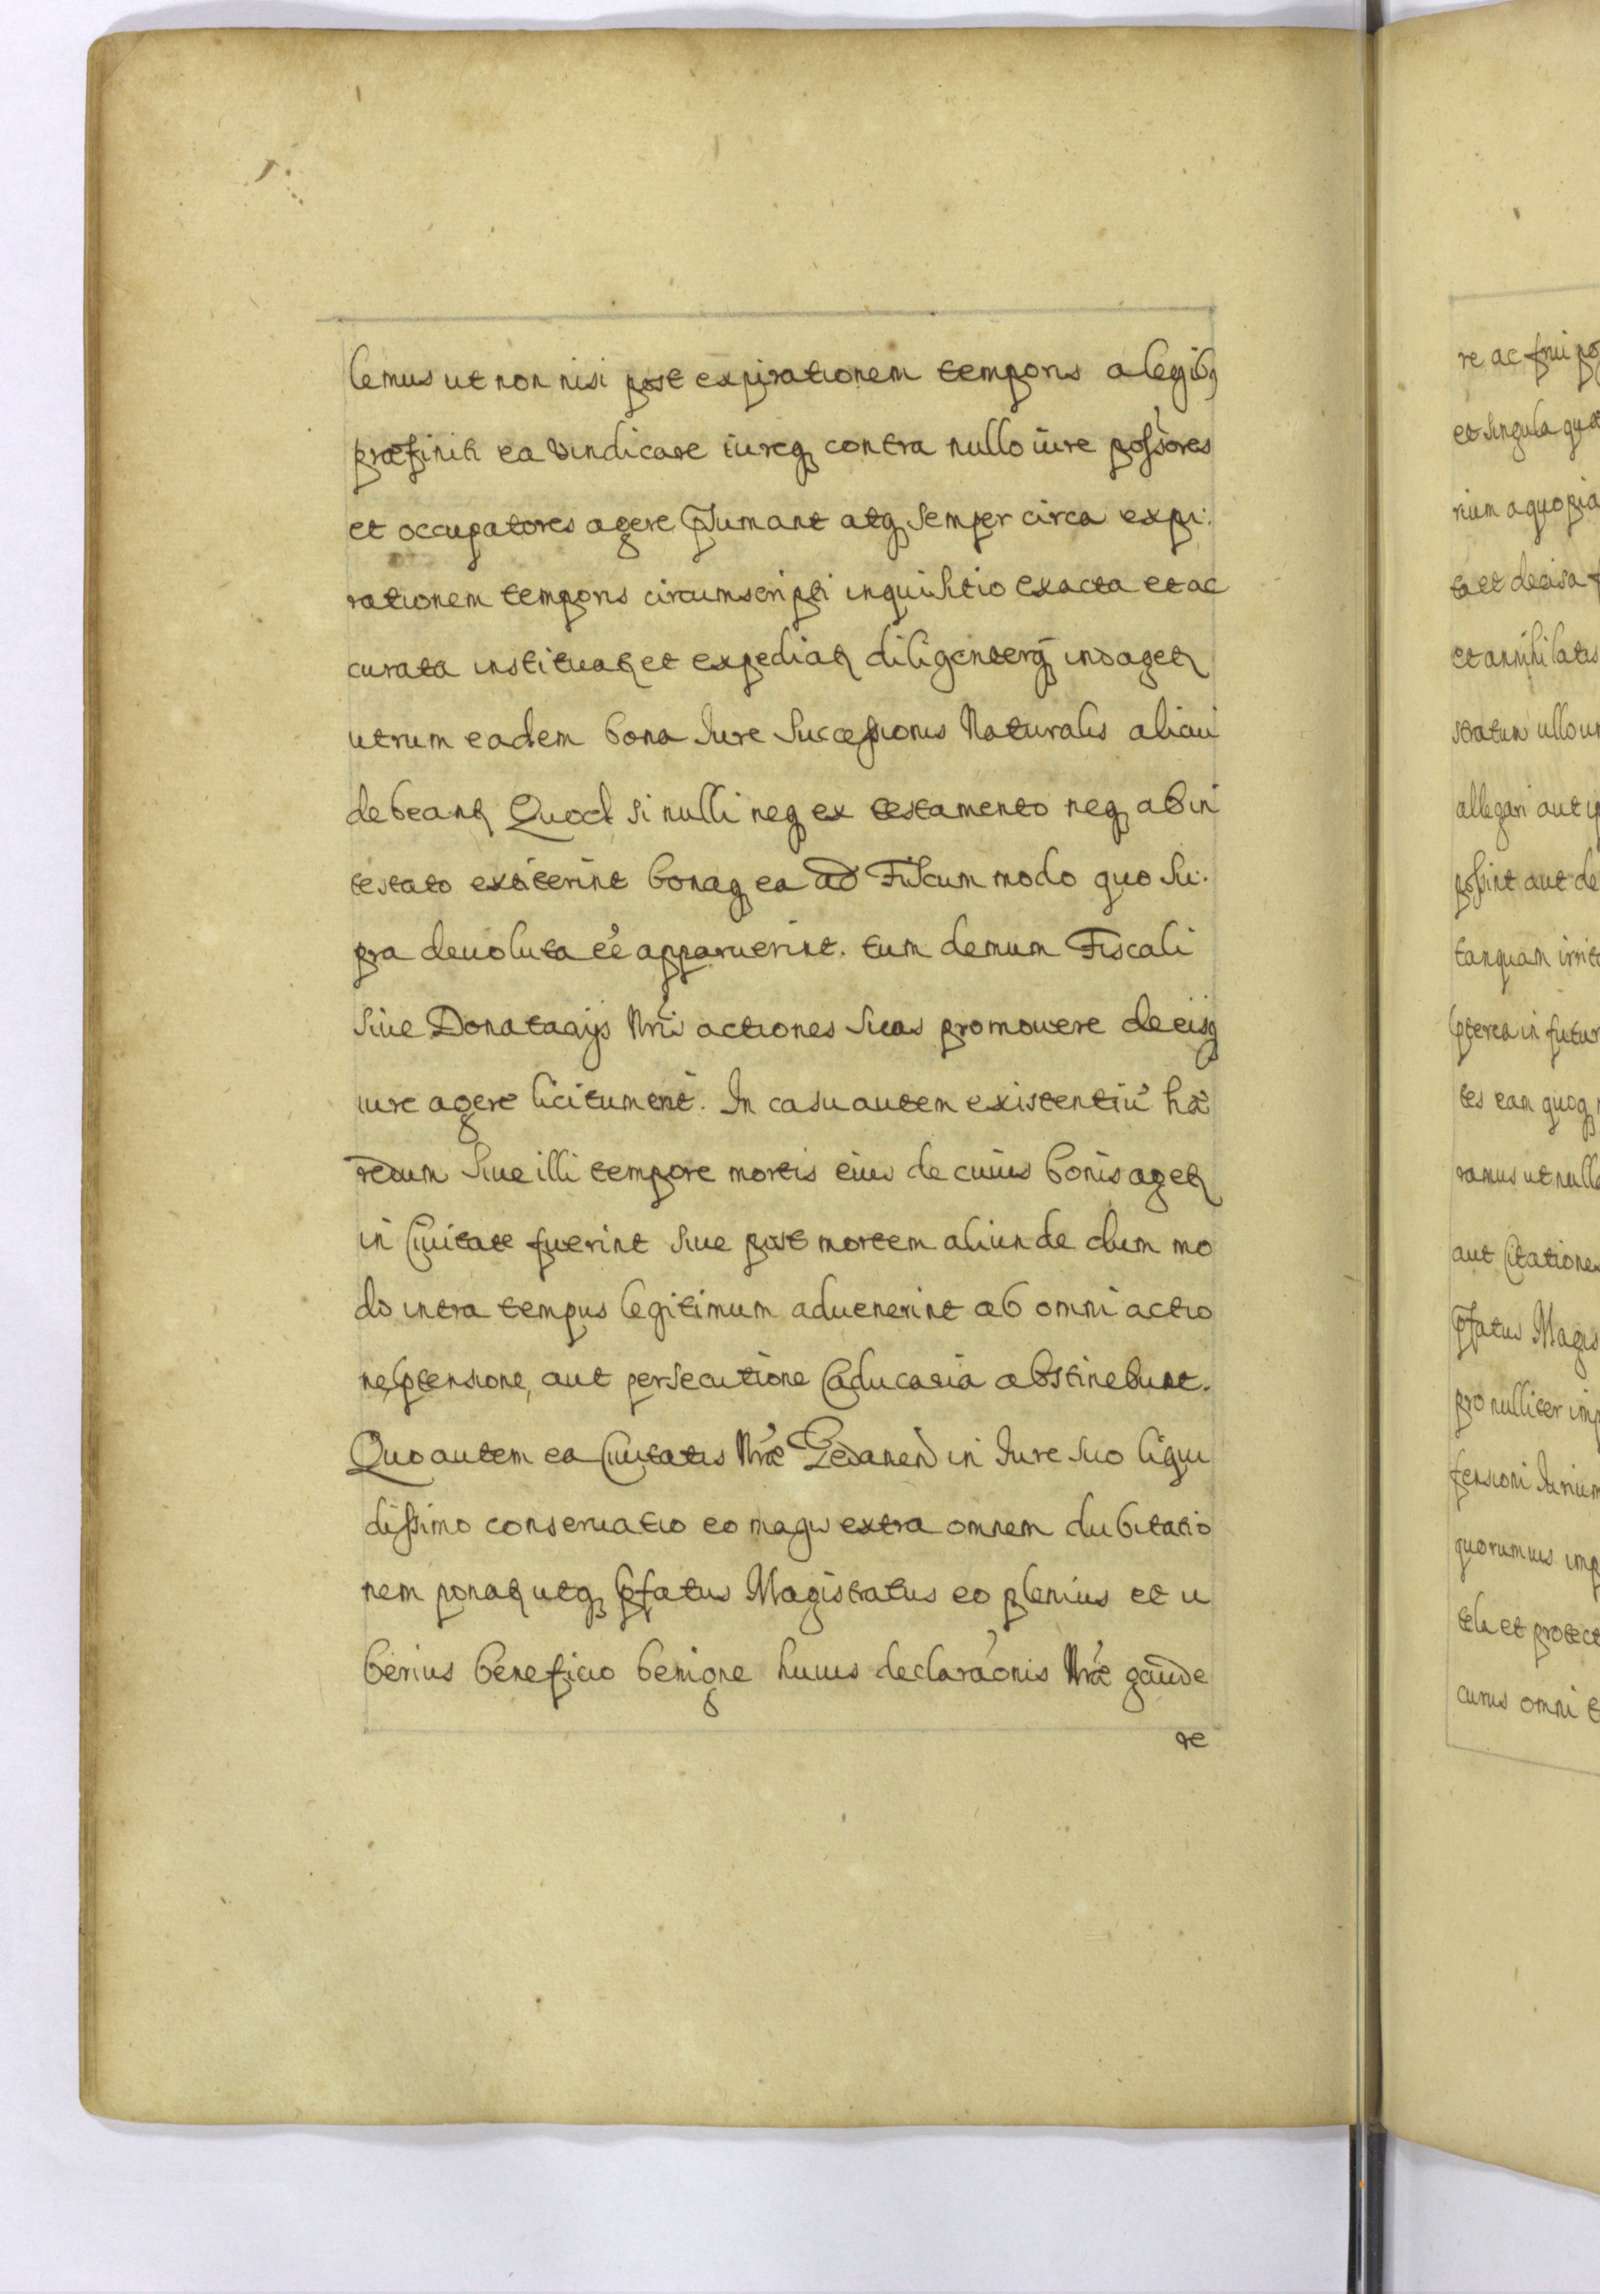 lemus ut non nisi post expirationem temporis a legibq
præfiniti ea vindicare iureq contra nullo iure possores
et occupatores agere psumant atq semper circa expi:
rationem temporis circumscripti inquisitio exacta et ac
curata instituatq et expediatq diligenterq indagetq
utrum eadem bona Jure Successionis Naturalis alicui
debeantq Quod si nulli neq ex testamento neq ab in
testato extiterint bonaq ea ad Fiscum modo quo su:
pra devoluta ée apparuerint. tum demum Fiscali
sive Donatarijs Nris actiones suas promovere de eisq
iure agere licitum erit. In casu autem existentiū hæ
redum sive illi tempore mortis eius de cuius bonis agetq
in Civitate fuerint sive post mortem aliunde dum mo
do intra tempus legitimum advenerint ab omni actio
ne, ptensione, aut persecutione Caducaria abstinebunt.
Quo autem ea Civitatis Nræ Gedanen in Jure suo liqui
dissimo conservatio eo magis extra omnem dubitatio
nem ponatq utq pfatus Magistratus eo plenius et u
berius beneficio benigne huius declaraonis Nræ gaude
re
re ac frui po
et singula quæ
rium a quopia
ta et decisa f
et annihilatis
stratum ullo un
allegari aut ip
possint aut de
tanquam irrit
pterea in futur
tes eam quoq
ramus ut null
aut Citatione
pfatus Magis
pro nulliter imp
fensioni Jurium
quorumvis imp
tela et protect
curus omni t